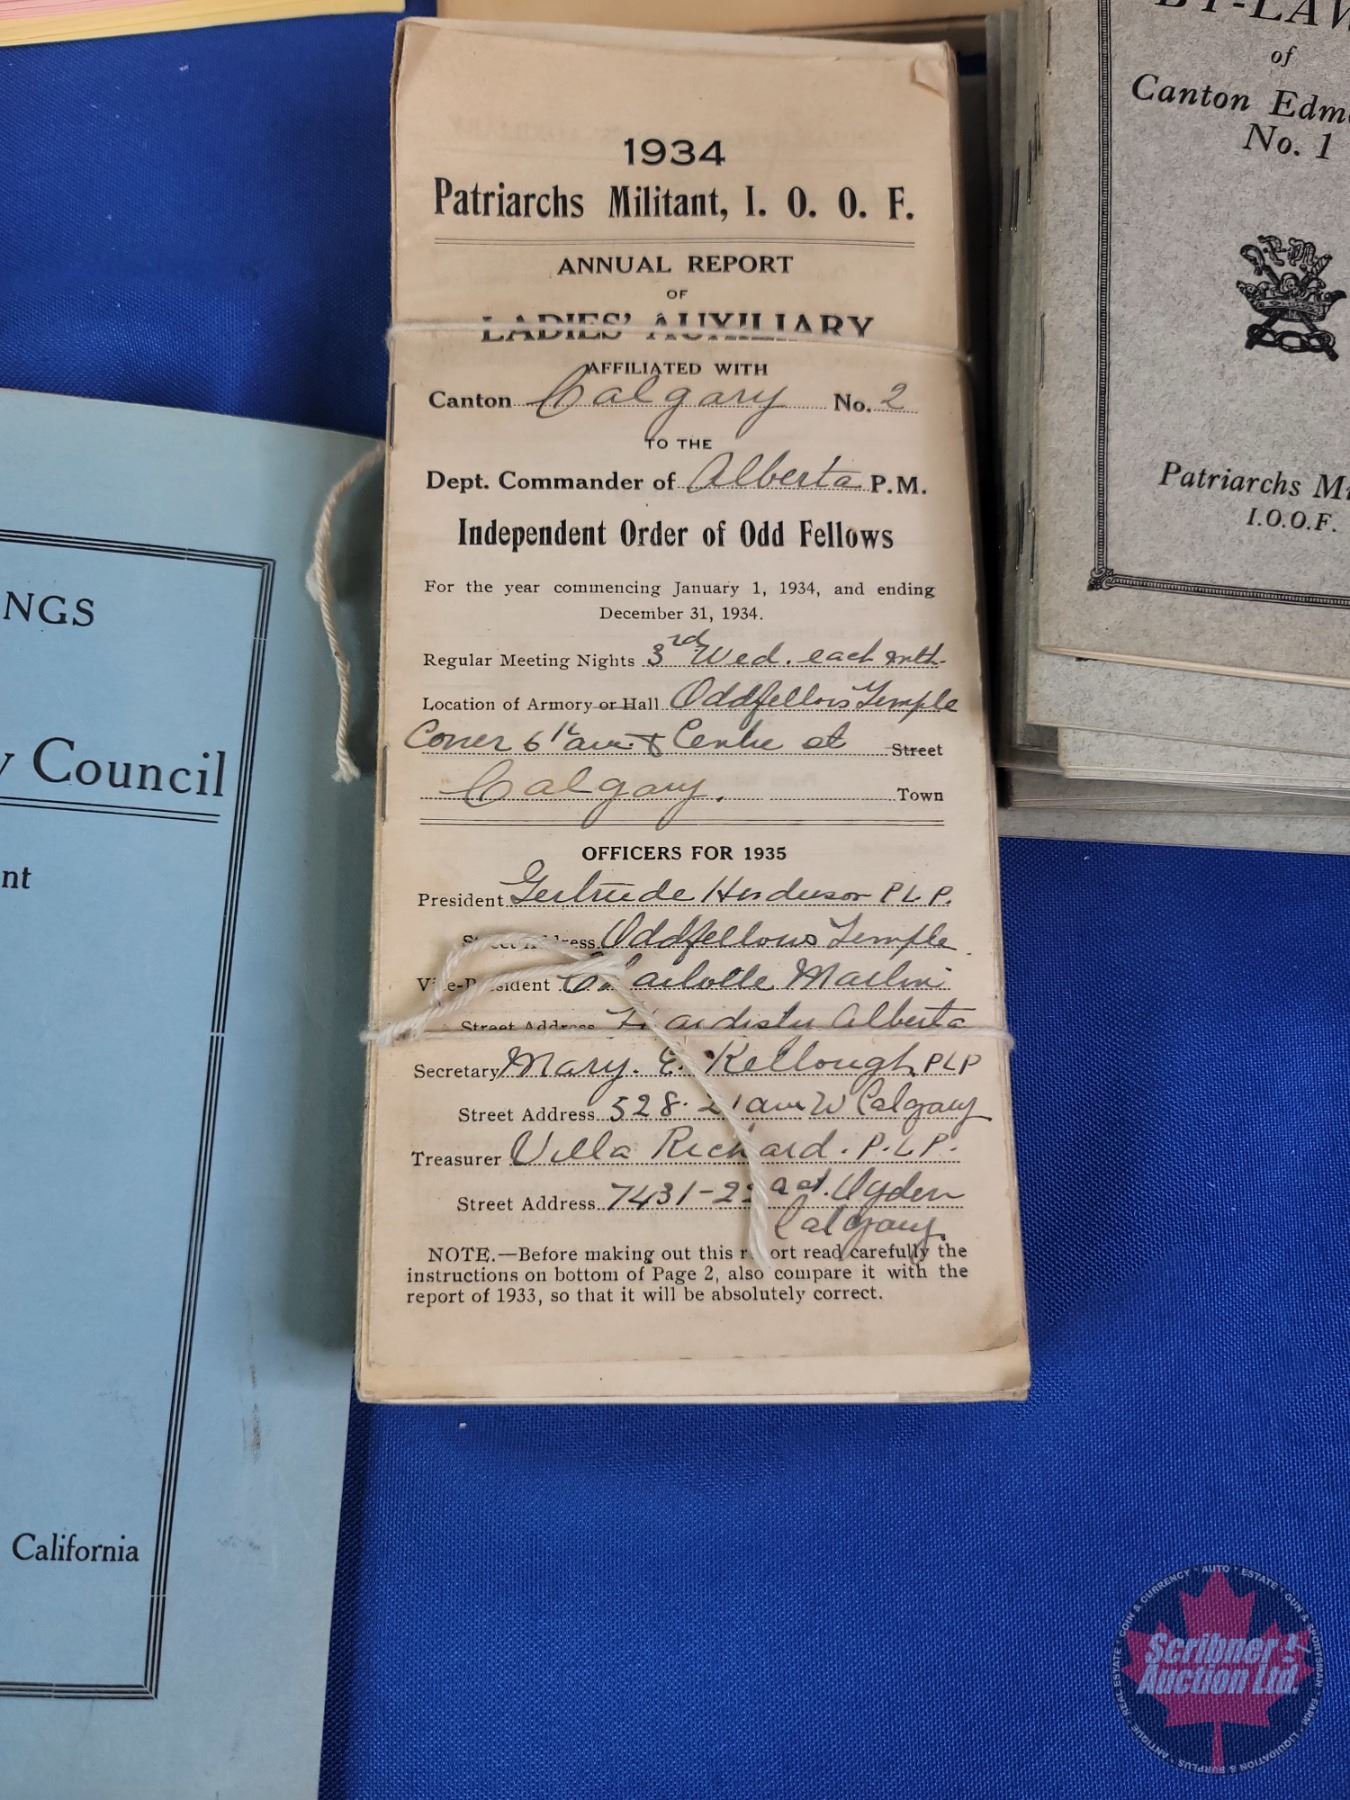 1934
Patriarchs Militant, I. O. O. F.
ANNUAL REPORT
OF
LADIES' AUXILIARY
AFFILIATED WITH
Canton Calgary No. 2
TO THE
Dept. Commander of Alberta P.M.
Independent Order of Odd Fellows
For the year commencing January 1, 1934, and ending
December 31, 1934.
Regular Meeting Nights 3rd Wed. each mth.
Location of Armory or Hall Oddfellows Temple
Corner 6th ave & Centre st Street
Calgary. Town
OFFICERS FOR 1935
President Gertrude Henderson P L P.
Street Address Oddfellows Temple
Vice-President Charlotte Martin
Street Address Hardisty Alberta
Secretary Mary. E. Kellough PLP
Street Address 528. 21 ave W Calgary
Treasurer Villa Richard. P.L.P.
Street Address 7431-2 st. Ogden
Calgary.
NOTE.—Before making out this report read carefully the
instructions on bottom of Page 2, also compare it with the
report of 1933, so that it will be absolutely correct.
NGS
y Council
nt
California
BY-LAW
of
Canton Edm
No. 1
Patriarchs Mi
I.O.O.F.
COIN & CURRENCY * AUTO * ESTATE * GUN & SPORTSMAN * FARM * LIQUIDATION & SURPLUS * ANTIQUE * REAL ESTATE *
Scribner
Auction Ltd.